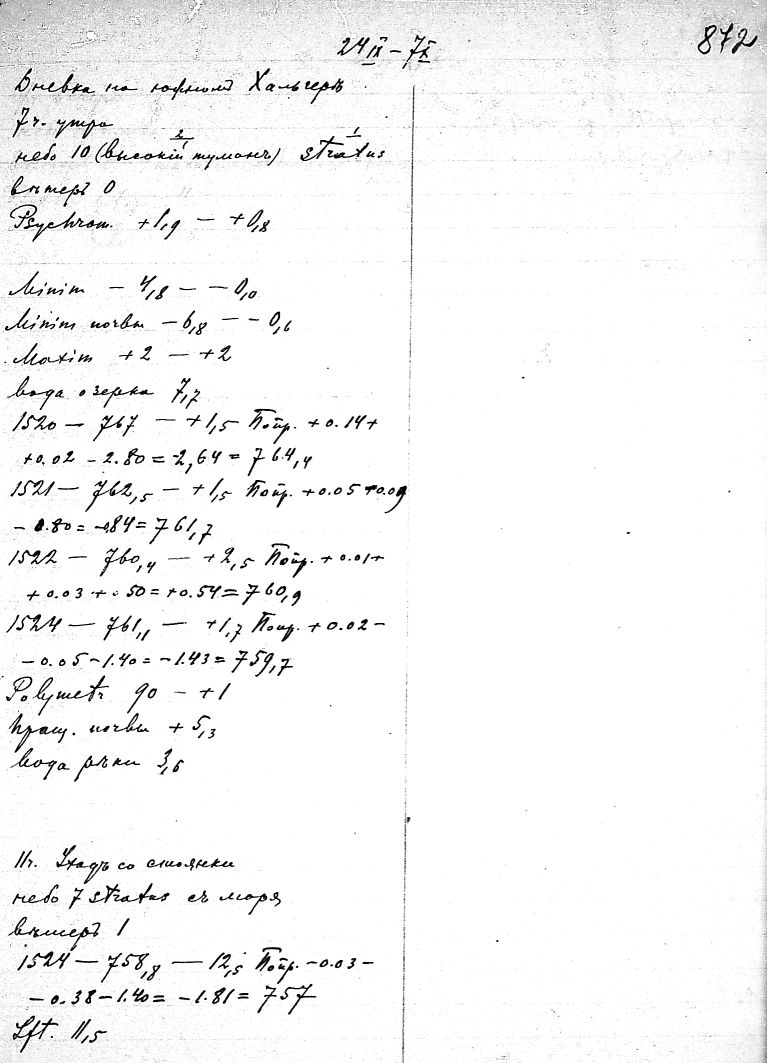 872
24 IX – 7 X
Дневка на южномъ Хальгеръ
7 ч. утра
небо 10 (высокій туманъ) 2/1 stratus 1
вѣтеръ 0
Psychrom. +1,9 — +0,8
Minim — 4,8 — – 0,0
Minim почвы – 6,8 — – 0,6
Maxim +2 — +2
вода озерка 7,7
1520 — 767 — +1,5 Попр. +0.14+
+0.02 – 2.80 = –2,64 = 764,4
1521 — 762,5 — +1,5 Попр. +0.05 +0.09
– 0.80 = –84 = 761,7
1522 — 760,4 — +2,5 Попр. +0.01+
+0.03 + .50 = +0.54 = 760,9
1524 — 761,1 — +1,7 Попр. +0.02 –
– 0.05 – 1.40 = –1.43 = 759,7
Polymetr 90 — +1
Пращ. почвы +5,3
вода рѣки 3,6
11 ч. Уходъ со стоянки
небо 7 stratus съ моря
вѣтеръ 1
1524 — 758,8 — 12,5 Попр. –0.03 –
– 0.38 – 1.40 = –1.81 = 757
Lft. 11,5